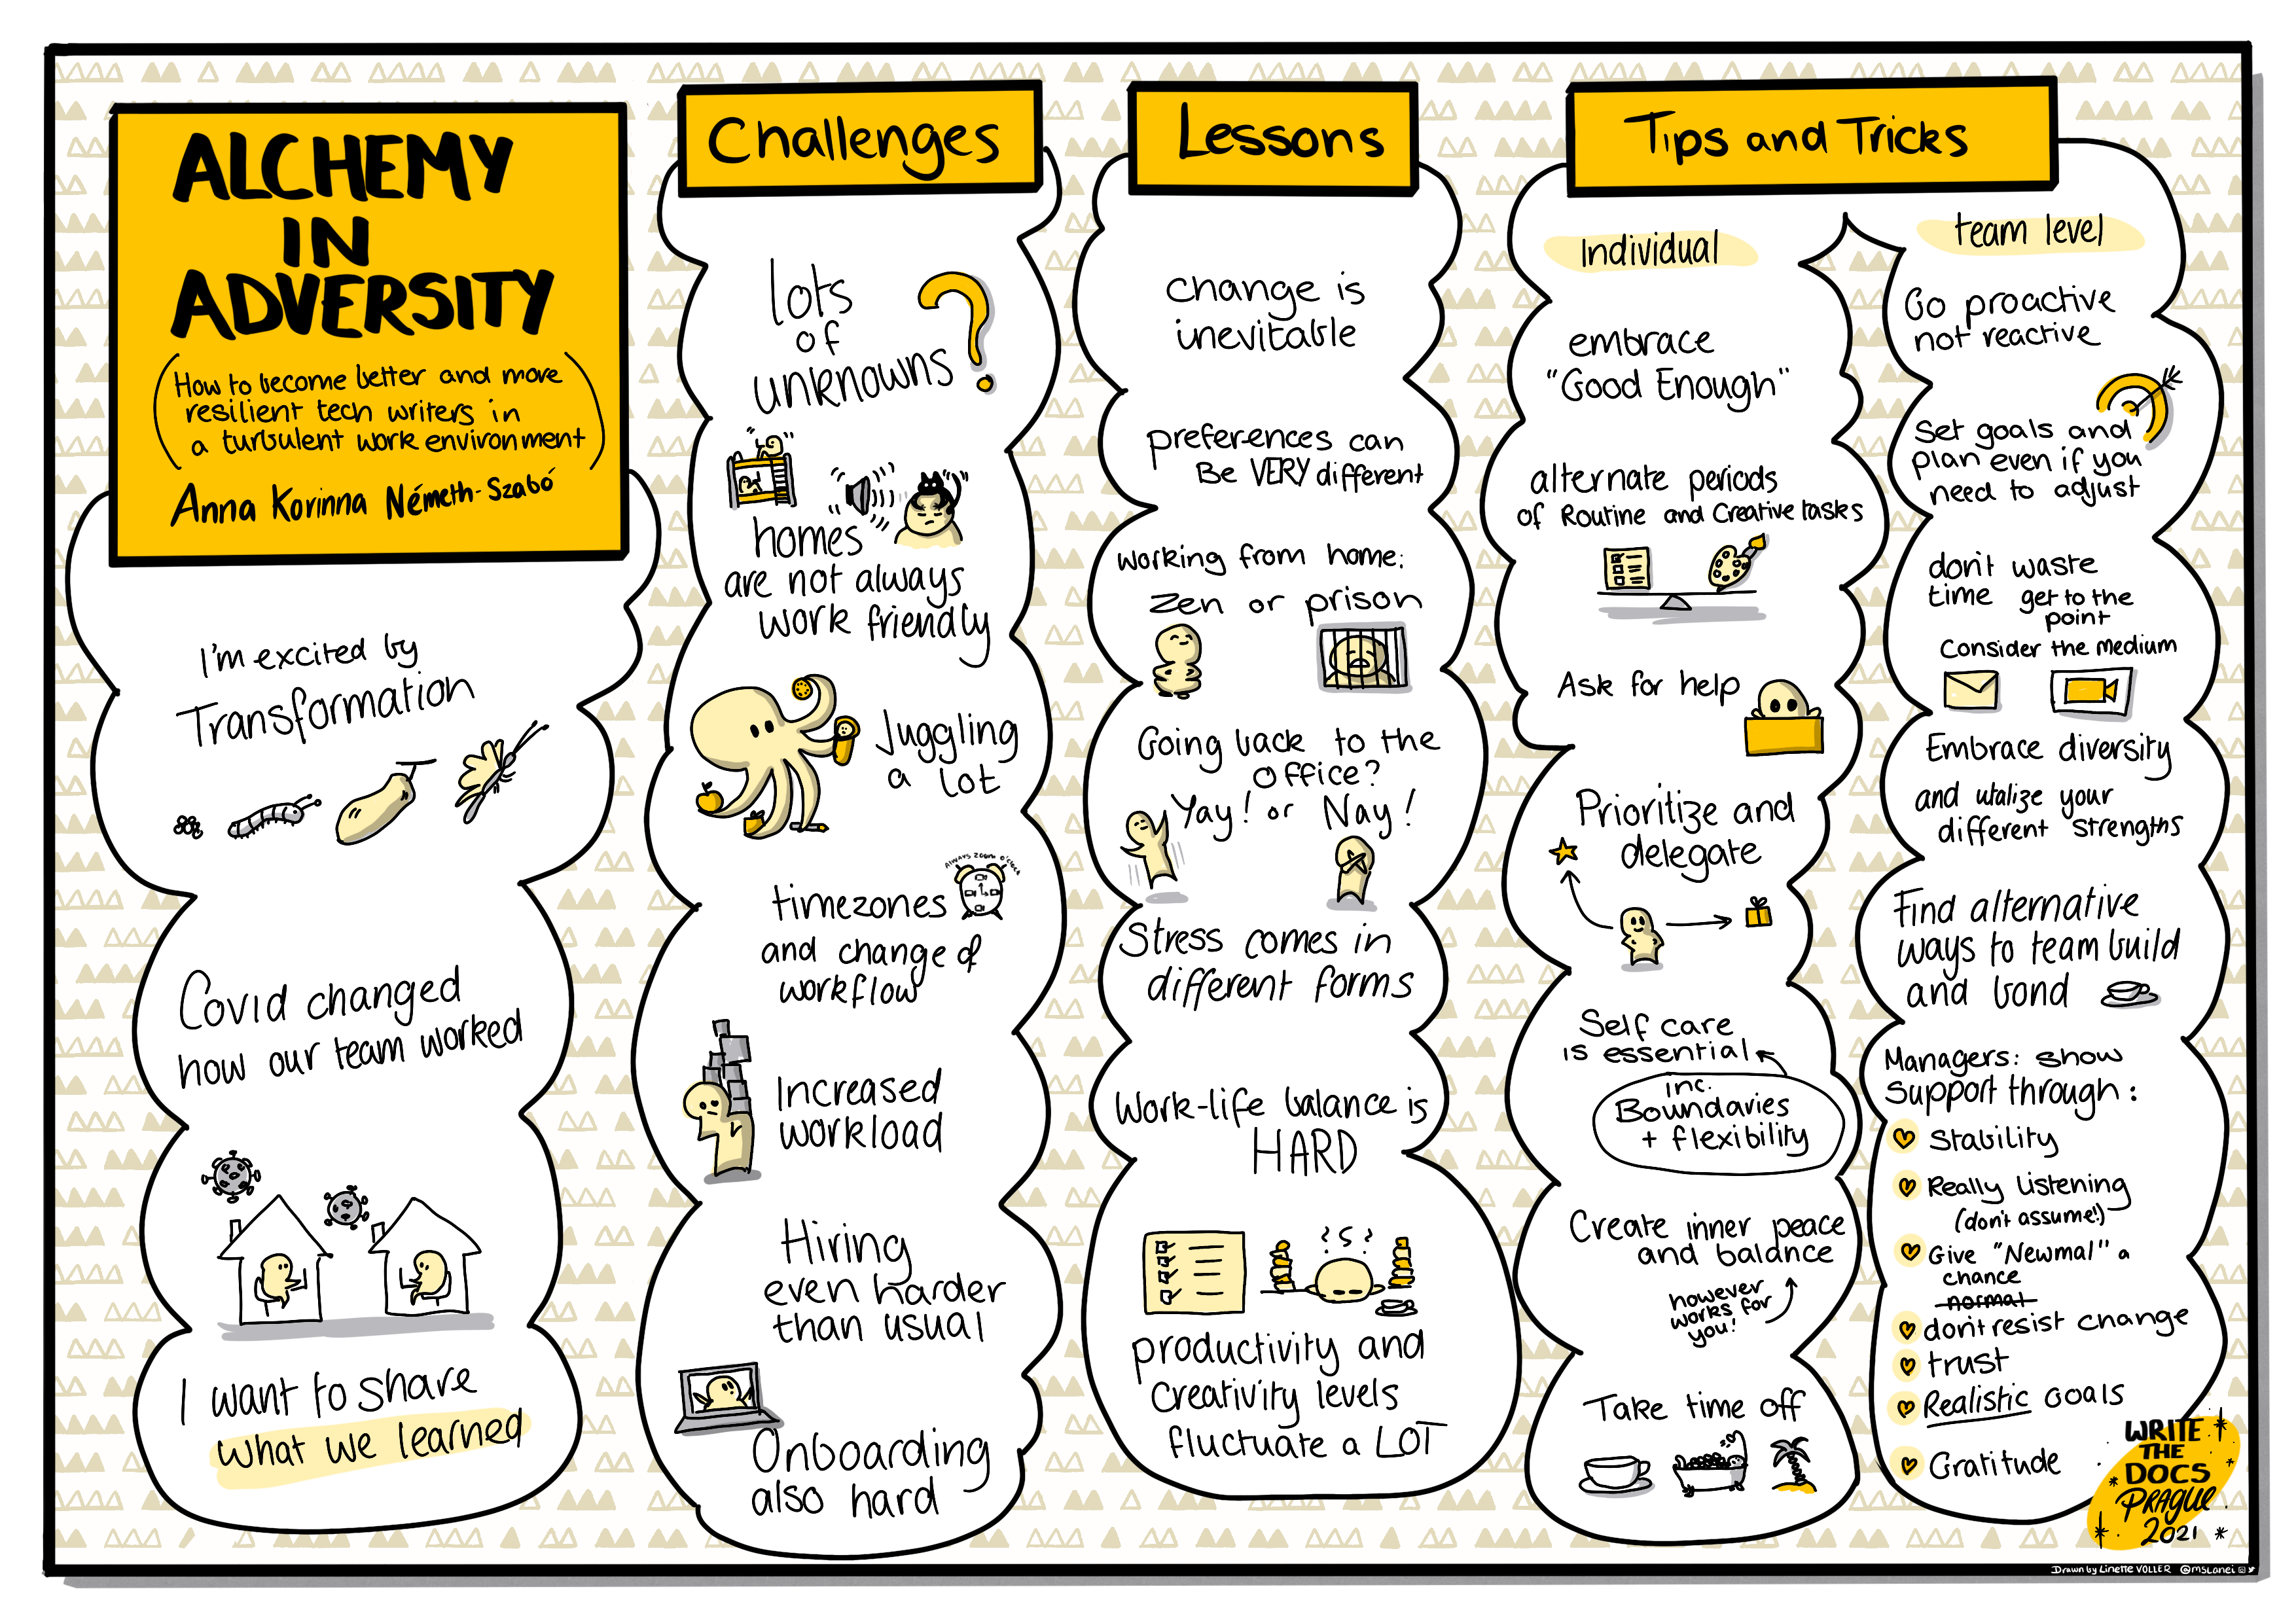 ALCHEMY
IN
ADVERSITY
(How to become better and more
resilient tech writers in
a turbulent work environment)
Anna Korinna Németh-Szabó
I'm excited by
Transformation
Covid changed
how our team worked
I want to share
what we learned
Challenges
lots
of
unknowns
homes
are not always
work friendly
Juggling
a lot
Always Zoom o'clock
timezones
and change of
workflow
Increased
workload
Hiring
even harder
than usual
Onboarding
also hard
Lessons
change is
inevitable
preferences can
Be VERY different
working from home:
zen or prison
Going back to the
office?
Yay! or Nay!
Stress comes in
different forms
Work-life balance is
HARD
productivity and
Creativity levels
fluctuate a LOT
Tips and Tricks
Individual
embrace
"Good Enough"
alternate periods
of Routine and Creative tasks
Ask for help
Prioritize and
delegate
Self care
is essential
inc.
Boundaries
+ flexibility
Create inner peace
and balance
however
works for
you!
Take time off
team level
Go proactive
not reactive
Set goals and
plan even if you
need to adjust
don't waste
time get to the
point
Consider the medium
Embrace diversity
and utalize your
different strengths
Find alternative
ways to team build
and bond
Managers: show
support through:
Stability
Really Listening
(don't assume!)
Give "Newmal" a
chance
normal
don't resist change
trust
Realistic Goals
Gratitude
WRITE
THE
DOCS
PRAGUE
2021
Drawn by Linette VOLLER @mslanei